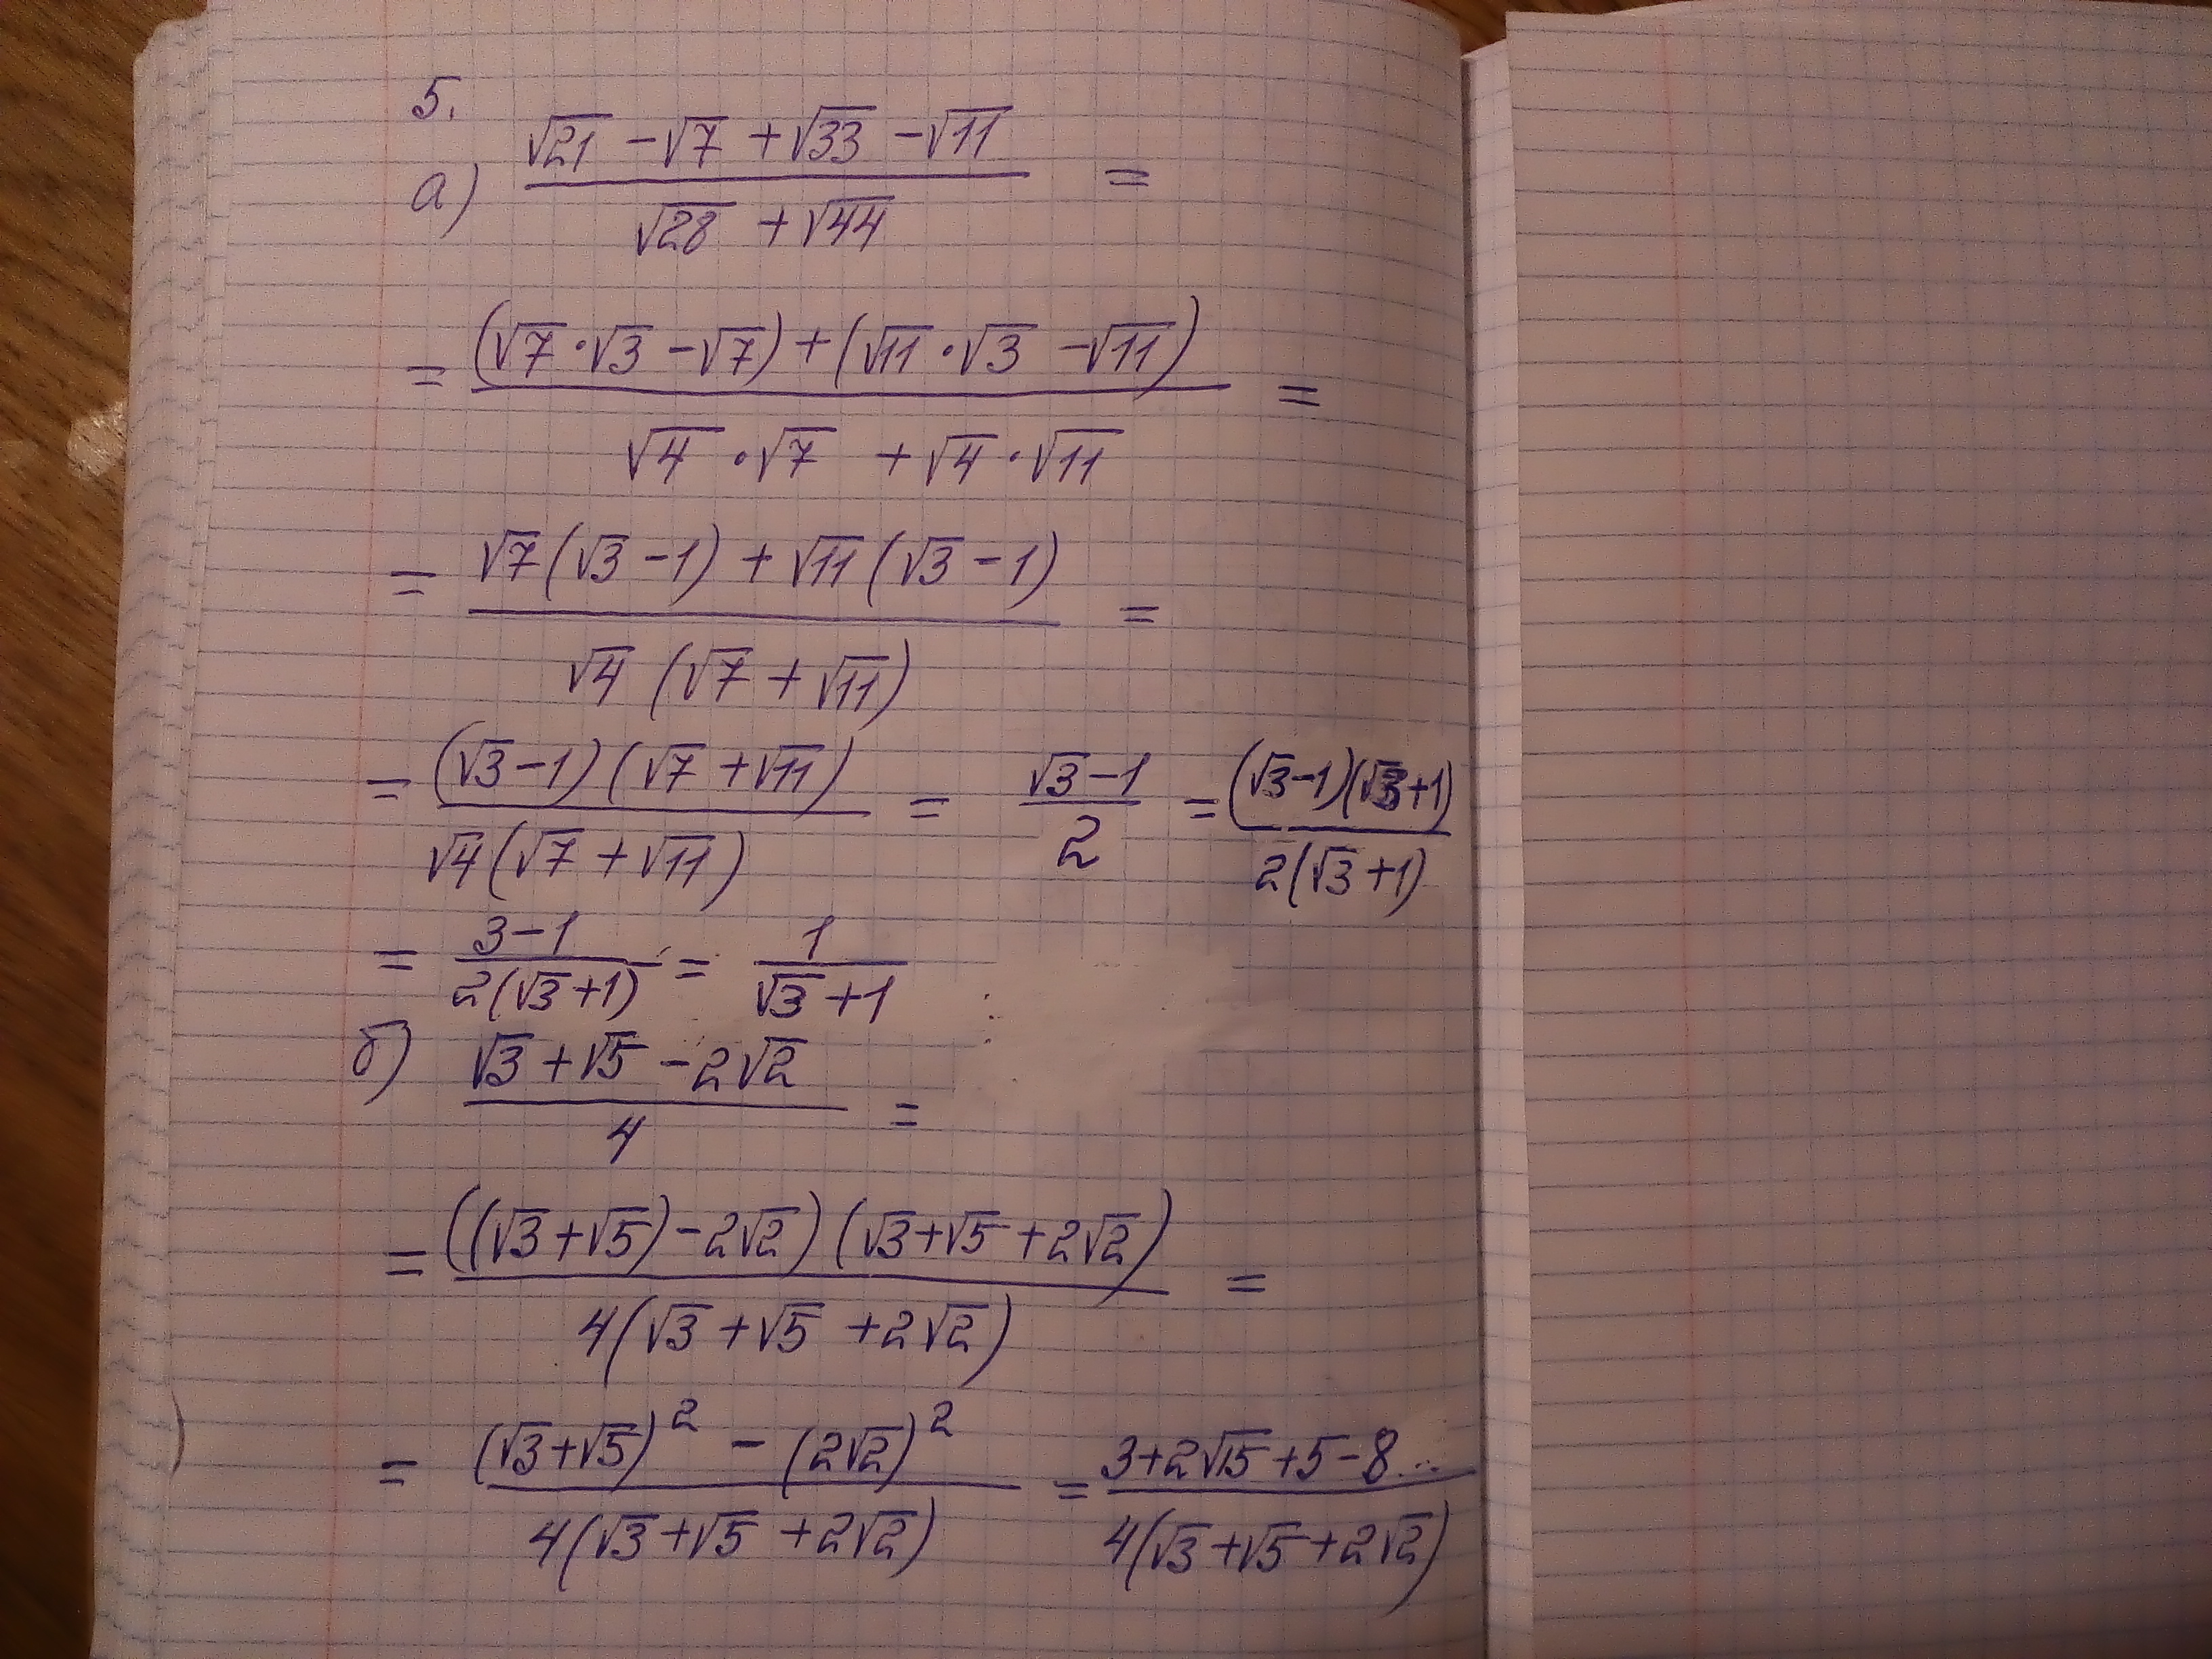 5.
а) (√21 − √7 + √33 − √11) / (√28 + √44) =
= ((√7 · √3 − √7) + (√11 · √3 − √11)) / (√4 · √7 + √4 · √11) =
= (√7(√3 − 1) + √11(√3 − 1)) / (√4(√7 + √11)) =
= ((√3 − 1)(√7 + √11)) / (√4(√7 + √11)) = (√3 − 1) / 2 = ((√3 − 1)(√3 + 1)) / (2(√3 + 1))
= (3 − 1) / (2(√3 + 1)) = 1 / (√3 + 1)
б) (√3 + √5 − 2√2) / 4 =
= (((√3 + √5) − 2√2)(√3 + √5 + 2√2)) / (4(√3 + √5 + 2√2)) =
= ((√3 + √5)² − (2√2)²) / (4(√3 + √5 + 2√2)) = (3 + 2√15 + 5 − 8) / (4(√3 + √5 + 2√2))